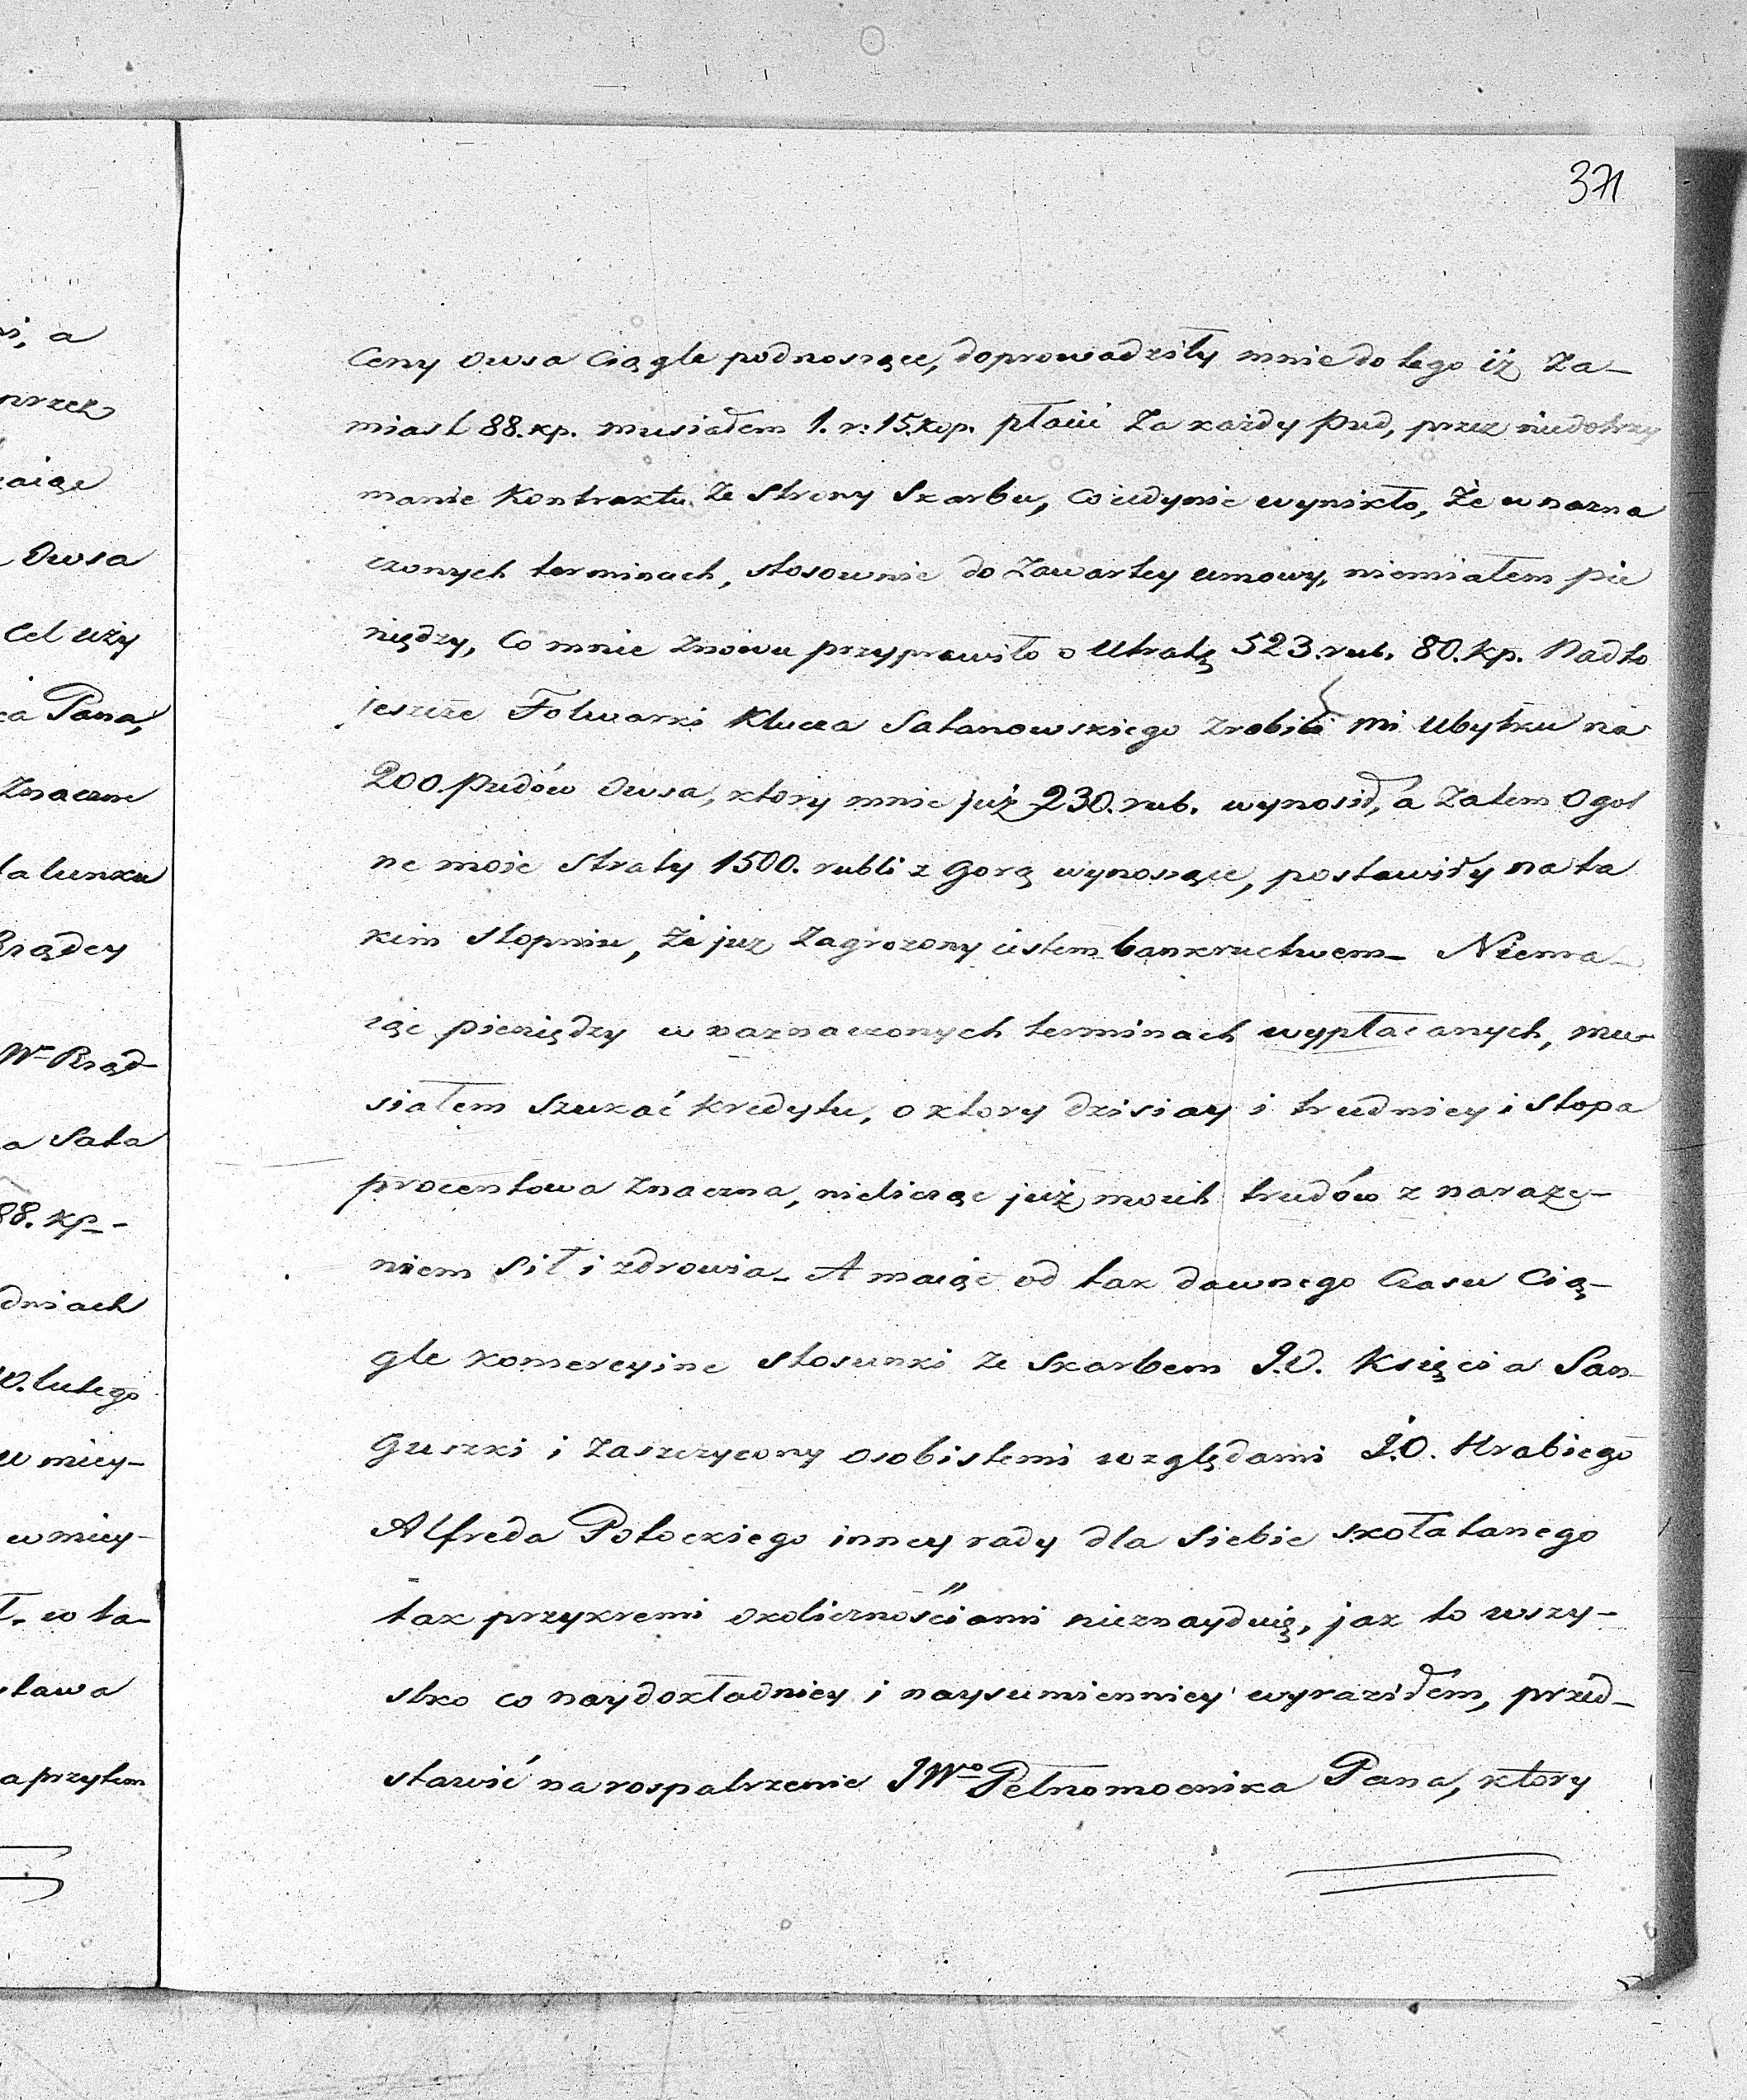 371
Ceny owsa ciągle podnosząće, doprowadziły mnie do tego iż za-
miast 88. kp. musiałem 1. r: 15. kop. płacić za każdy pud, przez niedotrzy
manie kontraktu ze strony Skarbu, co iedynie wynikło, że w nazna
czonych terminach, stosownie do zawartey umowy, niemiałem pie
niędzy, co mnie znowu przyprawiło o utratę 523. rub. 80. kp. Nadto
jeszcze Folwarki Klucza Satanowskiego zrobili mi ubytku na
200. pudów Owsa, ktory mnie już 230. rub. wynosił, a zatem Ogol
ne moie straty 1500. rubli z gorą wynosząće, postawiły na ta
kim stopniu, że juz zagrozony iestem bankructwem_ Niema_
iąc pieniędzy w naznaczonych terminach wypłacanych, mu-
siałem szukać kredytu, o ktory dzisiay i trudniey i stopa
procentowa znaczna, nielicząc już moich trudów z naraże-
niem sił i zdrowia_ A maiąc od tak dawnego czasu cią-
gle komercyine stosunki ze Skarbem J.O. Księcia San-
guszki i zaszczycony osobistemi względami J.O. Hrabiego
Alfreda Potockiego inney rady dla siebie skołatanego
tak przykremi okolicznościami nieznayduię, jak to wszy-
stko co naydokładniey i naysumienniey wyraziłem, przed-
stawić na rospatrzenie JWo Pełnomocnika Pana, ktory
a
przez
Owsa
cel uży
Pana,
znaczne
lutego
w miey-
w miey-
w ta-
a przytem
88. kp-
dniach